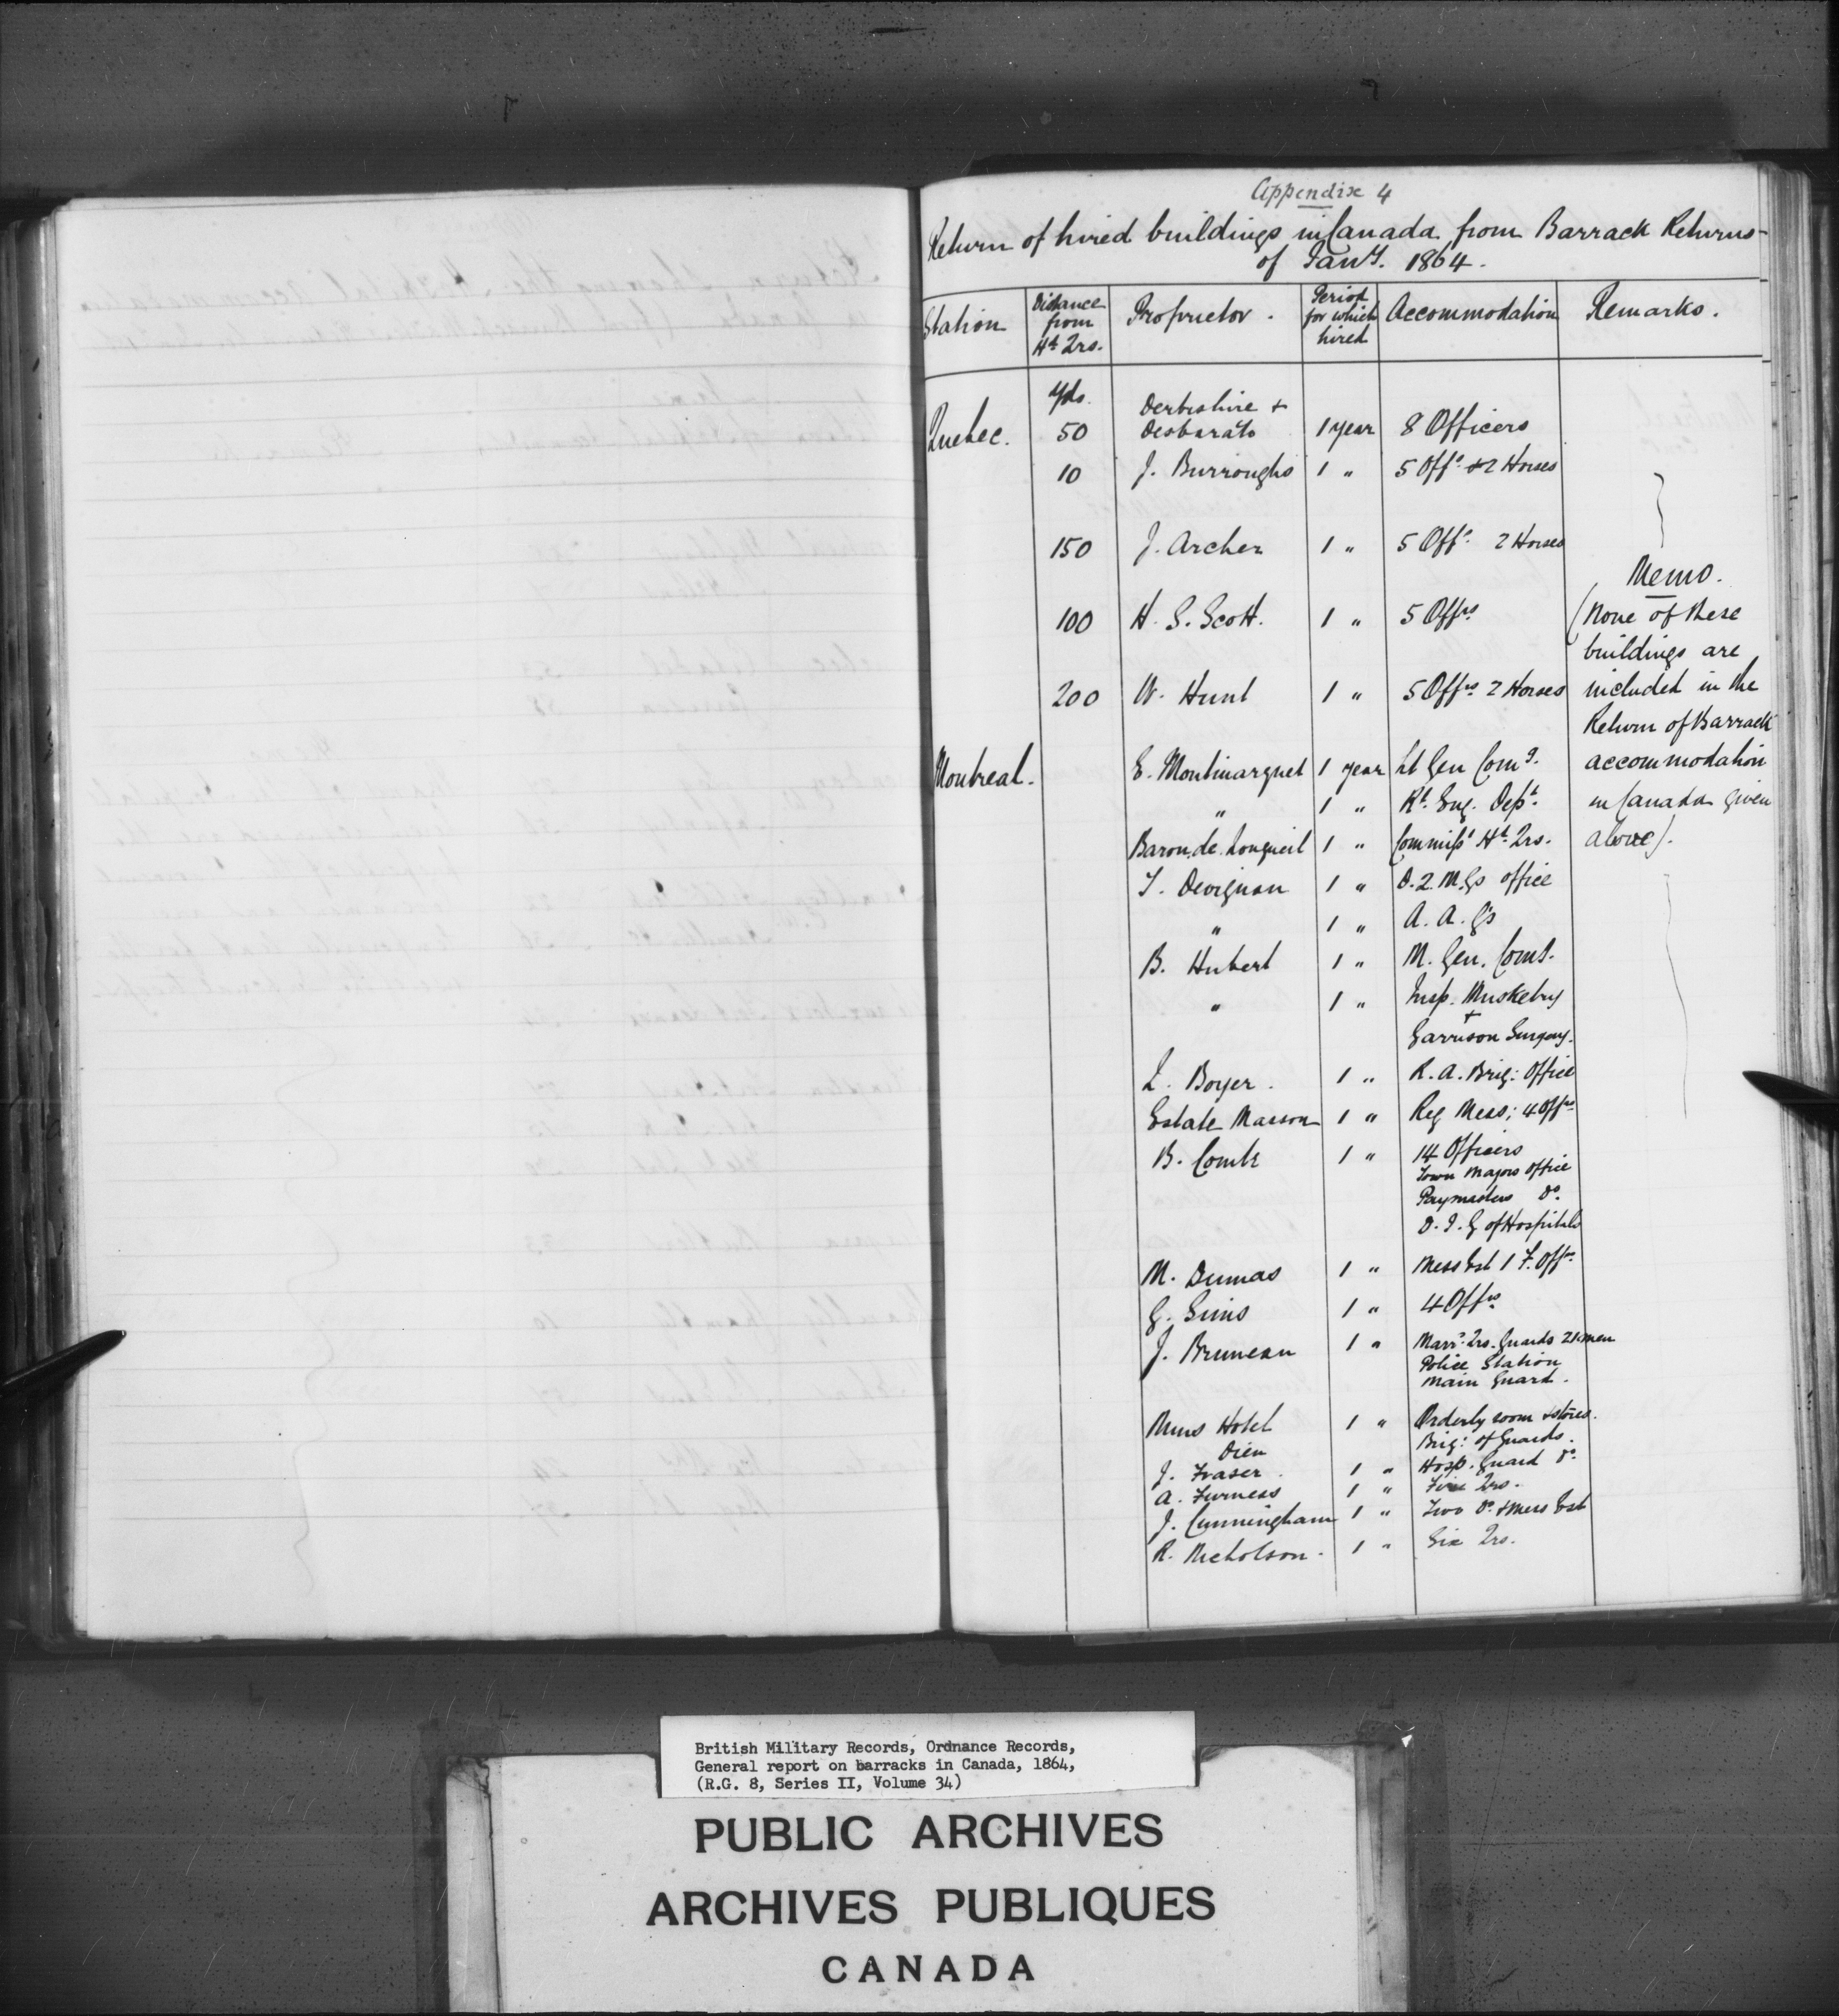 Appendix 4
Return of hired buildings in Canada from Barrack Returns
of Jany. 1864.
Station Distance from Hd Qrs. Proprietor. Period for which hired Accommodation Remarks.
Quebec. yds. 50 Derbishire + Desbarats 1 year 8 Officers
10 J. Burroughs 1 " 5 Offs. & 2 Horses
150 J. Archer 1 " 5 Offs. 2 Horses
Memo.
100 H. S. Scott. 1 " 5 Offrs (None of these
buildings are
200 W. Hunt 1 " 5 Offrs 2 Horses included in the
Return of Barrack
Montreal. E. Montmarquet 1 year Lt Gen Comg. accommodation
" 1 " Rl. Eng. Dept. in Canada given
Baron de Longueil 1 " Commisst Hd. Qrs. above).
T. Devignon 1 " D. Q. M. Gs office
" 1 " A. A. G's
B. Hubert 1 " M. Gen. Comg.
" 1 " Insp. Musketry
+
Garrison Surgery.
L. Boyer. 1 " R. A. Brig: Office
Estate Masson 1 " Reg Mess; 4 Offrs
B. Comte 1 " 14 Officers
Town Majors Office
Paymasters Do.
D. I. G of Hospitals
M. Dumas 1 " Mess Est 1 F. Offr.
G. Sims 1 " 4 Offrs
J. Bruneau 1 " Marrd. Qrs. Guards 21 men
Police Station
Main Guard.
Nuns Hotel 1 " Orderly room & stores.
Dieu Brig: of Guards.
J. Fraser. 1 " Hosp. Guard Do.
A. Furness 1 " Five Qrs.
J. Cunningham 1 " Two Do. & Mess Est
R. Nicholson. 1 " Six Qrs.
British Military Records, Ordnance Records,
General report on barracks in Canada, 1864,
(R.G. 8, Series II, Volume 34)
PUBLIC ARCHIVES
ARCHIVES PUBLIQUES
CANADA